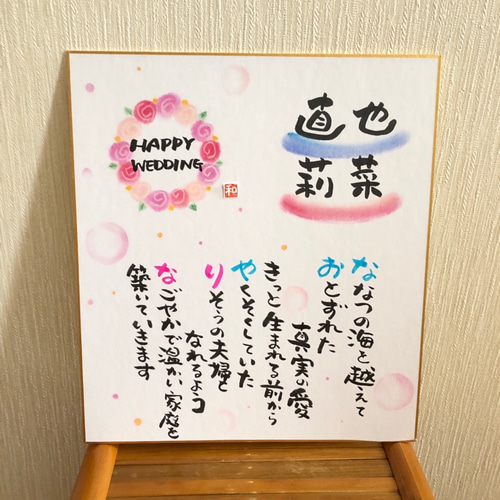 HAPPY
WEDDING
和
直也
莉菜
ななつの海を越えて
おとずれた
真実の愛
きっと生まれる前から
やくそくしていた
りそうの夫婦と
なれるよう
なごやかで温かい家庭を
築いていきます